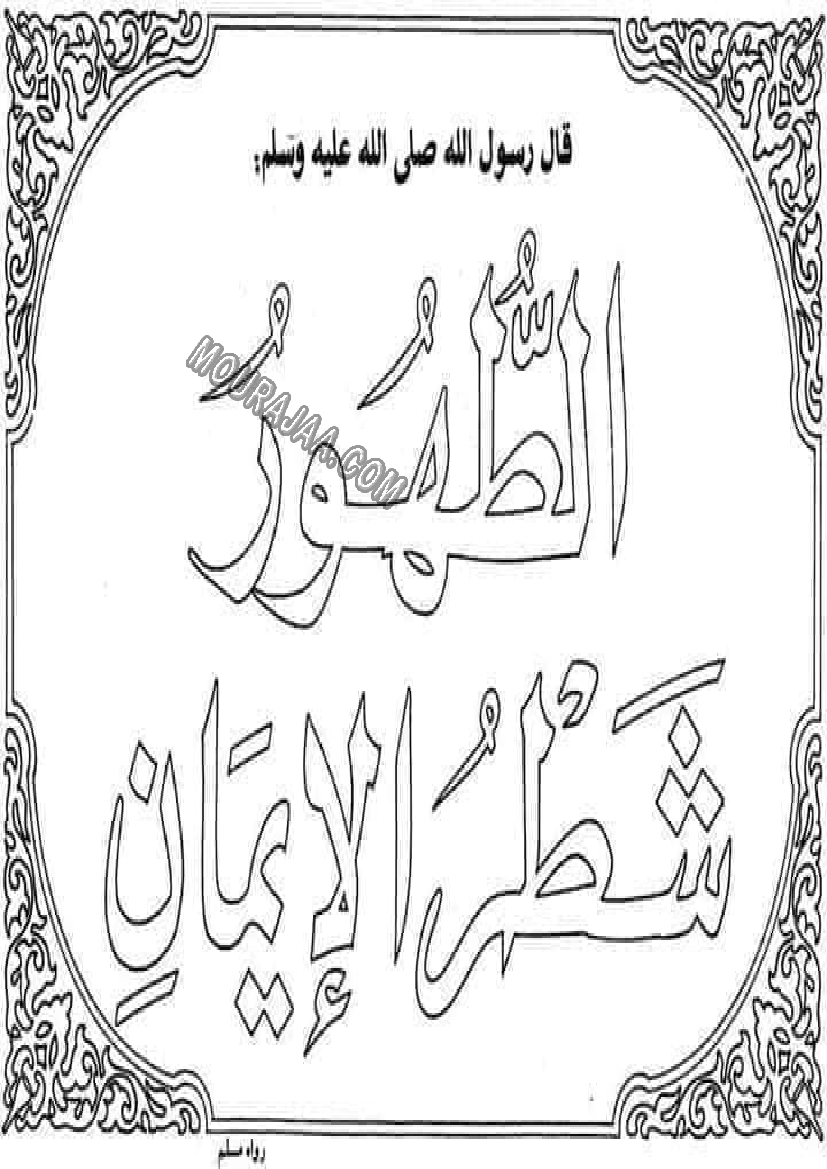 قال رسول الله صلى الله عليه وسلم:
الطُّهُورُ
شَطْرُ الإِيمَانِ
MOURAJAA.COM
رواه مسلم